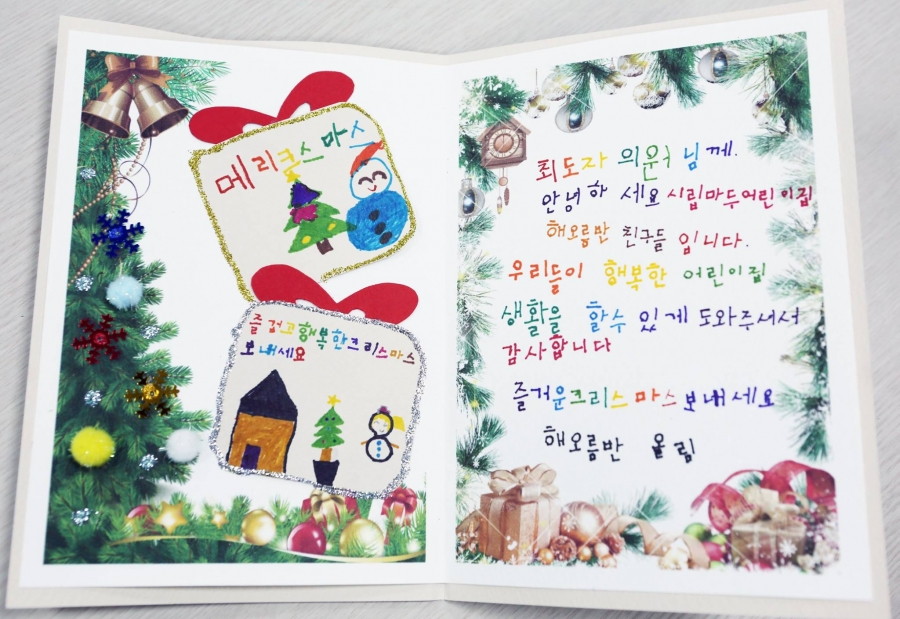 메리크스마스
즐겁고행복한크리스마스
보내세요
최도자 의원님께.
안녕하 세요 시립마두어린이집
해오름반 친구들 입니다.
우리들이 행복한 어린이집
생활을 할수 있게 도와주셔서
감사합니다
즐거운크리스 마스 보내세요
해오름반 올림